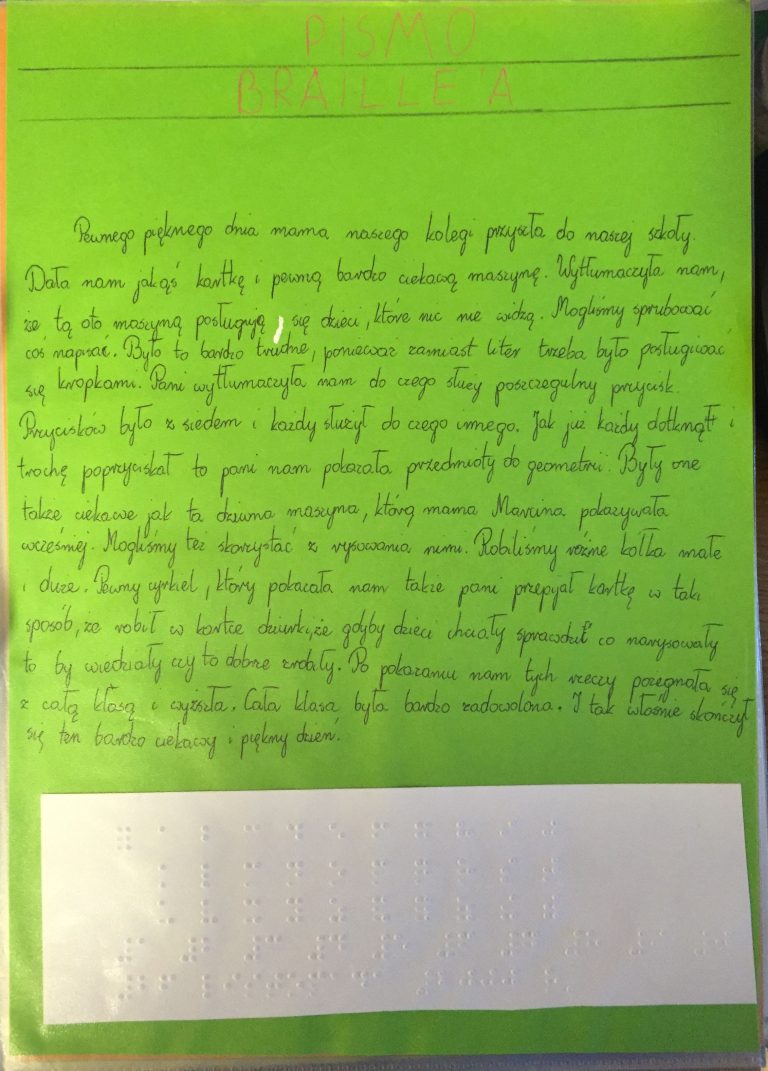 PISMO
BRAILLE'A
Pewnego pięknego dnia mama naszego kolegi przyszła do naszej szkoły.
Dała nam jakąś kartkę i pewną bardzo ciekawą maszynę. Wytłumaczyła nam,
że tą oto maszyną posługują się dzieci, które nic nie widzą. Mogliśmy sprubować
coś napisać. Było to bardzo trudne, ponieważ zamiast liter trzeba było posługiwać
się kropkami. Pani wytłumaczyła nam do czego służy poszczegulny przycisk.
Przycisków było z siedem i każdy służył do czego innego. Jak już każdy dotknął i
trochę poprzyciskał to pani nam pokazała przedmioty do geometrii. Były one
także ciekawe jak ta dziwna maszyna, którą mama Marcina pokazywała
wcześniej. Mogliśmy też skorzystać z rysowania nimi. Robiliśmy różne kółka małe
i duże. Pewny cyrkiel, który pokazała nam także pani przepjął kartkę w taki
sposób, że robił w kartce dziurki, że gdyby dzieci chciały sprawdzić co narysowały
to by wiedziały czy to dobrze zrobiły. Po pokazaniu nam tych rzeczy pożegnała się
z całą klasą i wyszła. Cała klasa była bardzo zadowolona. I tak właśnie skończył
się ten bardzo ciekawy i piękny dzień.